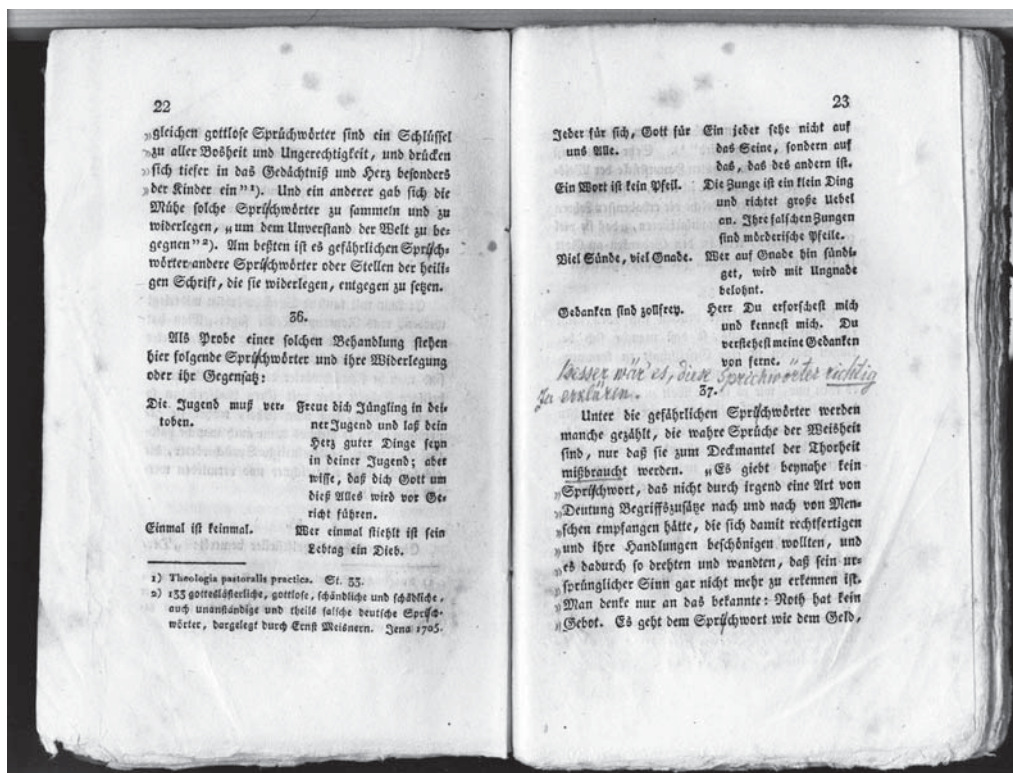 22
„gleichen gottlose Sprüchwörter sind ein Schlüssel
„zu aller Bosheit und Ungerechtigkeit, und drücken
„sich tiefer in das Gedächtniß und Herz besonders
„der Kinder ein"¹). Und ein anderer gab sich die
Mühe solche Sprichwörter zu sammeln und zu
widerlegen, „um dem Unverstand der Welt zu be-
gegnen"²). Am beßten ist es gefährlichen Sprich-
wörter andere Sprichwörter oder Stellen der heili-
gen Schrift, die sie widerlegen, entgegen zu setzen.
36.
Als Probe einer solchen Behandlung stehen
hier folgende Sprichwörter und ihre Widerlegung
oder ihr Gegensatz:
Die Jugend muß ver-
toben.
Freue dich Jüngling in dei-
ner Jugend und laß dein
Herz guter Dinge seyn
in deiner Jugend; aber
wisse, daß dich Gott um
dieß Alles wird vor Ge-
richt führen.
Einmal ist keinmal.
Wer einmal stiehlt ist sein
Lebtag ein Dieb.
1) Theologia pastoralis practica. St. 33.
2) 133 gotteslästerliche, gottlose, schändliche und schädliche,
auch unanständige und theils falsche deutsche Sprich-
wörter, dargelegt durch Ernst Meisnern. Jena 1705.
23
Jeder für sich, Gott für
uns Alle.
Ein jeder sehe nicht auf
das Seine, sondern auf
das, das des andern ist.
Ein Wort ist kein Pfeil.
Die Zunge ist ein klein Ding
und richtet große Uebel
an. Ihre falschen Zungen
sind mörderische Pfeile.
Viel Sünde, viel Gnade.
Wer auf Gnade hin sündi-
get, wird mit Ungnade
belohnt.
Gedanken sind zollfrey.
Herr Du erforschest mich
und kennest mich. Du
verstehest meine Gedanken
von ferne.
Besser wär es, diese Sprichwörter richtig
zu erklären.
37.
Unter die gefährlichen Sprichwörter werden
manche gezählt, die wahre Sprüche der Weisheit
sind, nur daß sie zum Deckmantel der Thorheit
mißbraucht werden. „Es giebt beynahe kein
„Sprichwort, das nicht durch irgend eine Art von
„Deutung Begriffszusätze nach und nach von Men-
„schen empfangen hätte, die sich damit rechtfertigen
„und ihre Handlungen beschönigen wollten, und
„es dadurch so drehten und wandten, daß sein ur-
„sprünglicher Sinn gar nicht mehr zu erkennen ist.
„Man denke nur an das bekannte: Noth hat kein
„Gebot. Es geht dem Sprichwort wie dem Geld,